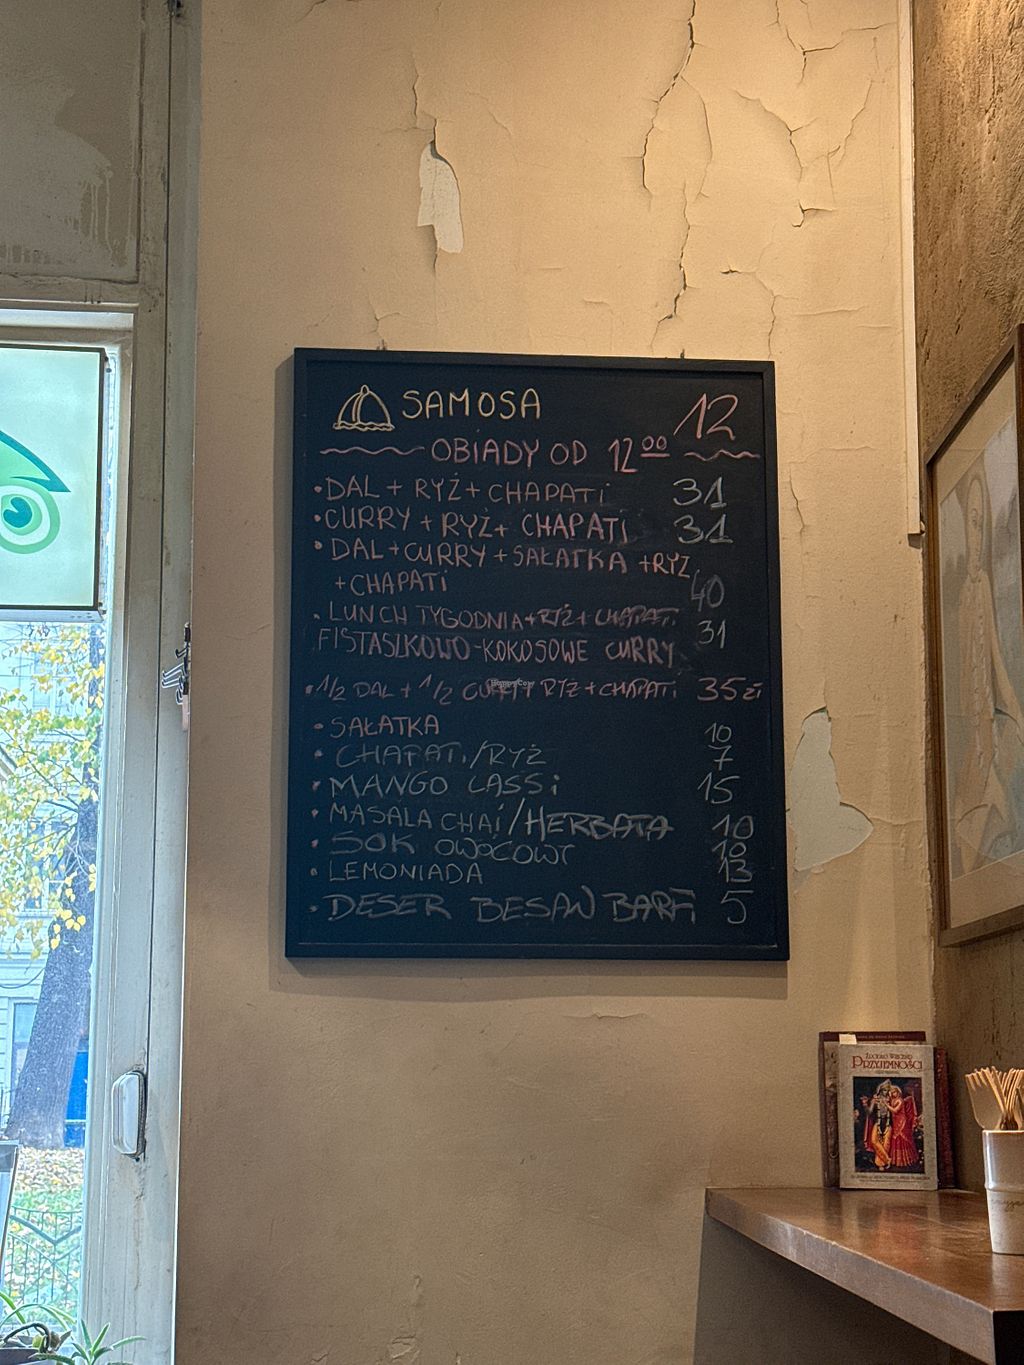 SAMOSA 12
OBIADY OD 12 00
• DAL + RYŻ + CHAPATi 31
• CURRY + RYŻ + CHAPATi 31
• DAL + CURRY + SAŁATKA + RYŻ
+ CHAPATi 40
• LUNCH TYGODNIA + RYŻ + CHAPATi 31
FISTASZKOWO-KOKOSOWE CURRY
• 1/2 DAL + 1/2 CURRY RYŻ + CHAPATi 35 zł
• SAŁATKA 10
• CHAPATi/RYŻ 7
• MANGO LASSi 15
• MASALA CHAi/HERBATA 10
• SOK OWOCOWY 10
• LEMONIADA 13
• DESER BESAN BARFi 5
HappyCow
PRZYJEMNOŚCI